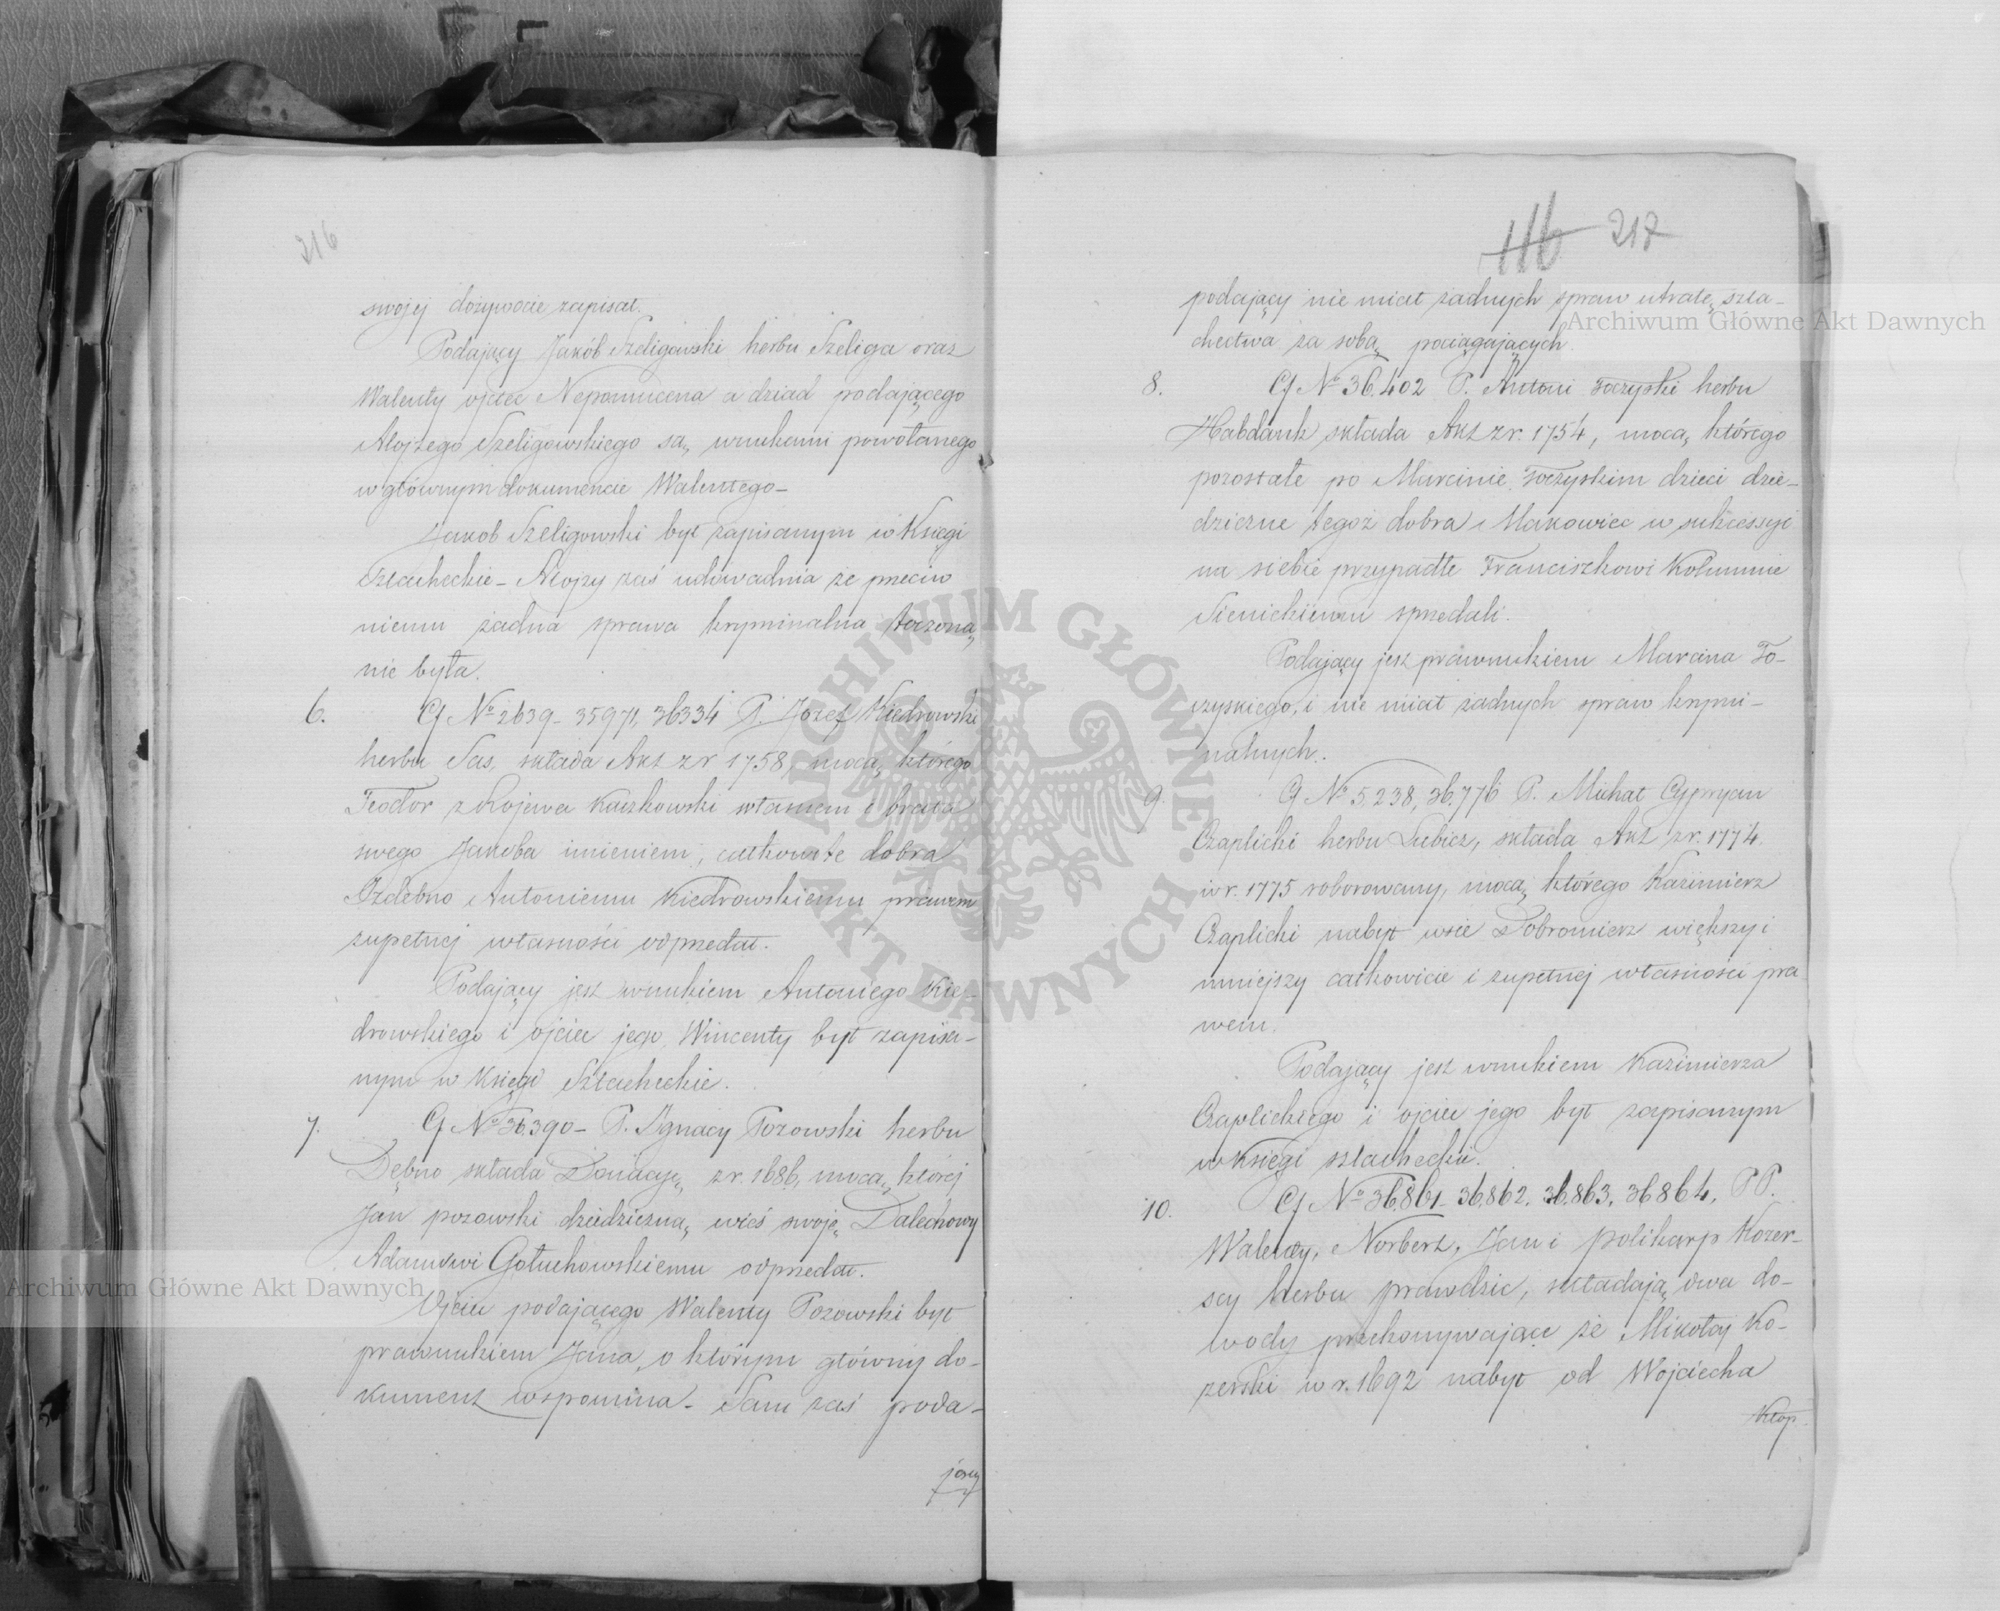 216
swojej dożywocie zapisał.
Podający Jakób Szeligowski herbu Szeliga oraz
Walenty ojciec Nepomucena a dziad podającego
Alojzego Szeligowskiego są, wnukami powołanego
w głównym dokumencie Walentego –
Jakób Szeligowski był zapisanym w Księgi
Szlacheckie – Alojzy zaś udowadnia że przeciw
niemu żadna sprawa kryminalna toczoną
nie była.
6. Cf No 2639 – 35971, 36334 P. Józef Kiedrowski
herbu Sas, składa Akt z r 1758, mocą, którego
Teodor z Kojewa Kaczkowski własnem i brata
swego Jakóba imieniem, całkowite dobra
Ozdebno Antoniemu Kiedrowskiemu prawem
zupełnej własności odprzedał.
Podający jest wnukiem Antoniego Kie-
drowskiego i ojciec jego Wincenty był zapisa-
nym w Księgi Szlacheckie.
7. Cf No 36,390 – P. Ignacy Pozowski herbu
Dębno składa Donacyę, z r. 1686, mocą, której
Jan pozowski dziedziczną, wieś swoję Dalechowy
Adamowi Gołuchowskiemu odprzedał.
Ojciec podającego Walenty Pozowski był
prawnukiem Jana, o którym główny do-
kument wspomina – Sam zaś poda-
jący
116 217
podający nie miał żadnych spraw utratę szla-
chectwa za sobą, pociągających.
8. Cf No 36,402 P. Antoni Toczyski herbu
Habdank składa Akt z r. 1754, mocą, którego
pozostałe po Marcinie Toczyskim dzieci dzie-
dziczne tegoż dobra Makowiec w sukcessyi
na siebie przypadłe Franciszkowi Kolumnie
Sienickiemu sprzedali.
Podający jest prawnukiem Marcina To-
czyskiego, i nie miał żadnych spraw krymi-
nalnych.
9. Cf No 5,238, 36,776 P. Michał Cypryan
Czaplicki herbu Lubicz, składa Akt z r. 1774
w r. 1775 roborowany, mocą, którego Kazimierz
Czaplicki nabył wsie Dobromierz większy i
mniejszy całkowicie i zupełnej własności pra
wem.
Podający jest wnukiem Kazimierza
Czaplickiego i ojciec jego był zapisanym
w Księgi szlacheckie.
10. Cf No 36,861 – 36,862, 36,863, 36864, PP.
Walenty, Norbert, Jan i polikarp Kozer-
scy herbu prawdzic, składają, dwa do-
wody przekonywające że Mikołaj Ko-
zerski w r. 1692 nabył od Wojciecha
Kłop
Archiwum Główne Akt Dawnych
Archiwum Główne Akt Dawnych
ARCHIWUM GŁÓWNE AKT DAWNYCH